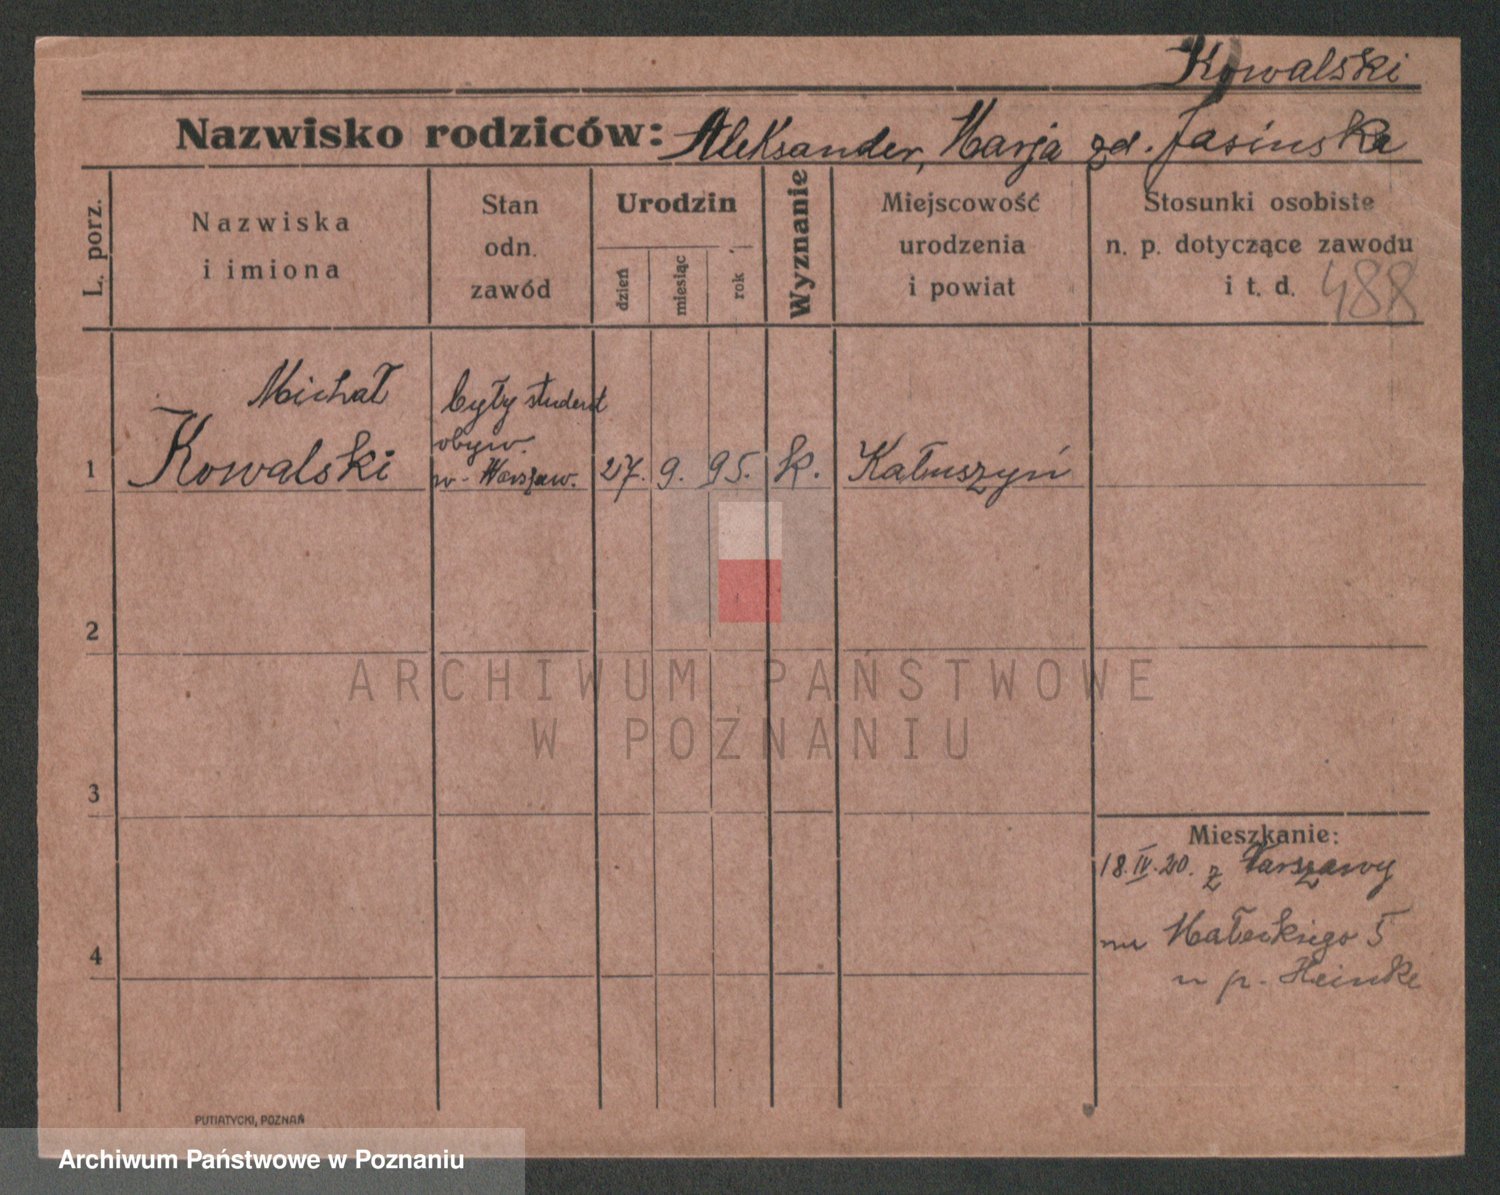 Kowalski
Nazwisko rodziców: Aleksander, Marja zd. Jasinska
L. porz.
Nazwiska
i imiona
Stan
odn.
zawód
Urodzin
dzień
miesiąc
rok
Wyznanie
Miejscowość
urodzenia
i powiat
Stosunki osobiste
n. p. dotyczące zawodu
i t. d.
488
Michał
Kowalski
były student
obyw.
w Warszaw.
1
27. 9. 95. k. Kałuszyń
2
ARCHIWUM PAŃSTWOWE
W POZNANIU
3
Mieszkanie:
18.IV.20. z Warszawy
Małeckiego 5
u p. Heinke
4
PUTIATYCKI, POZNAŃ
Archiwum Państwowe w Poznaniu